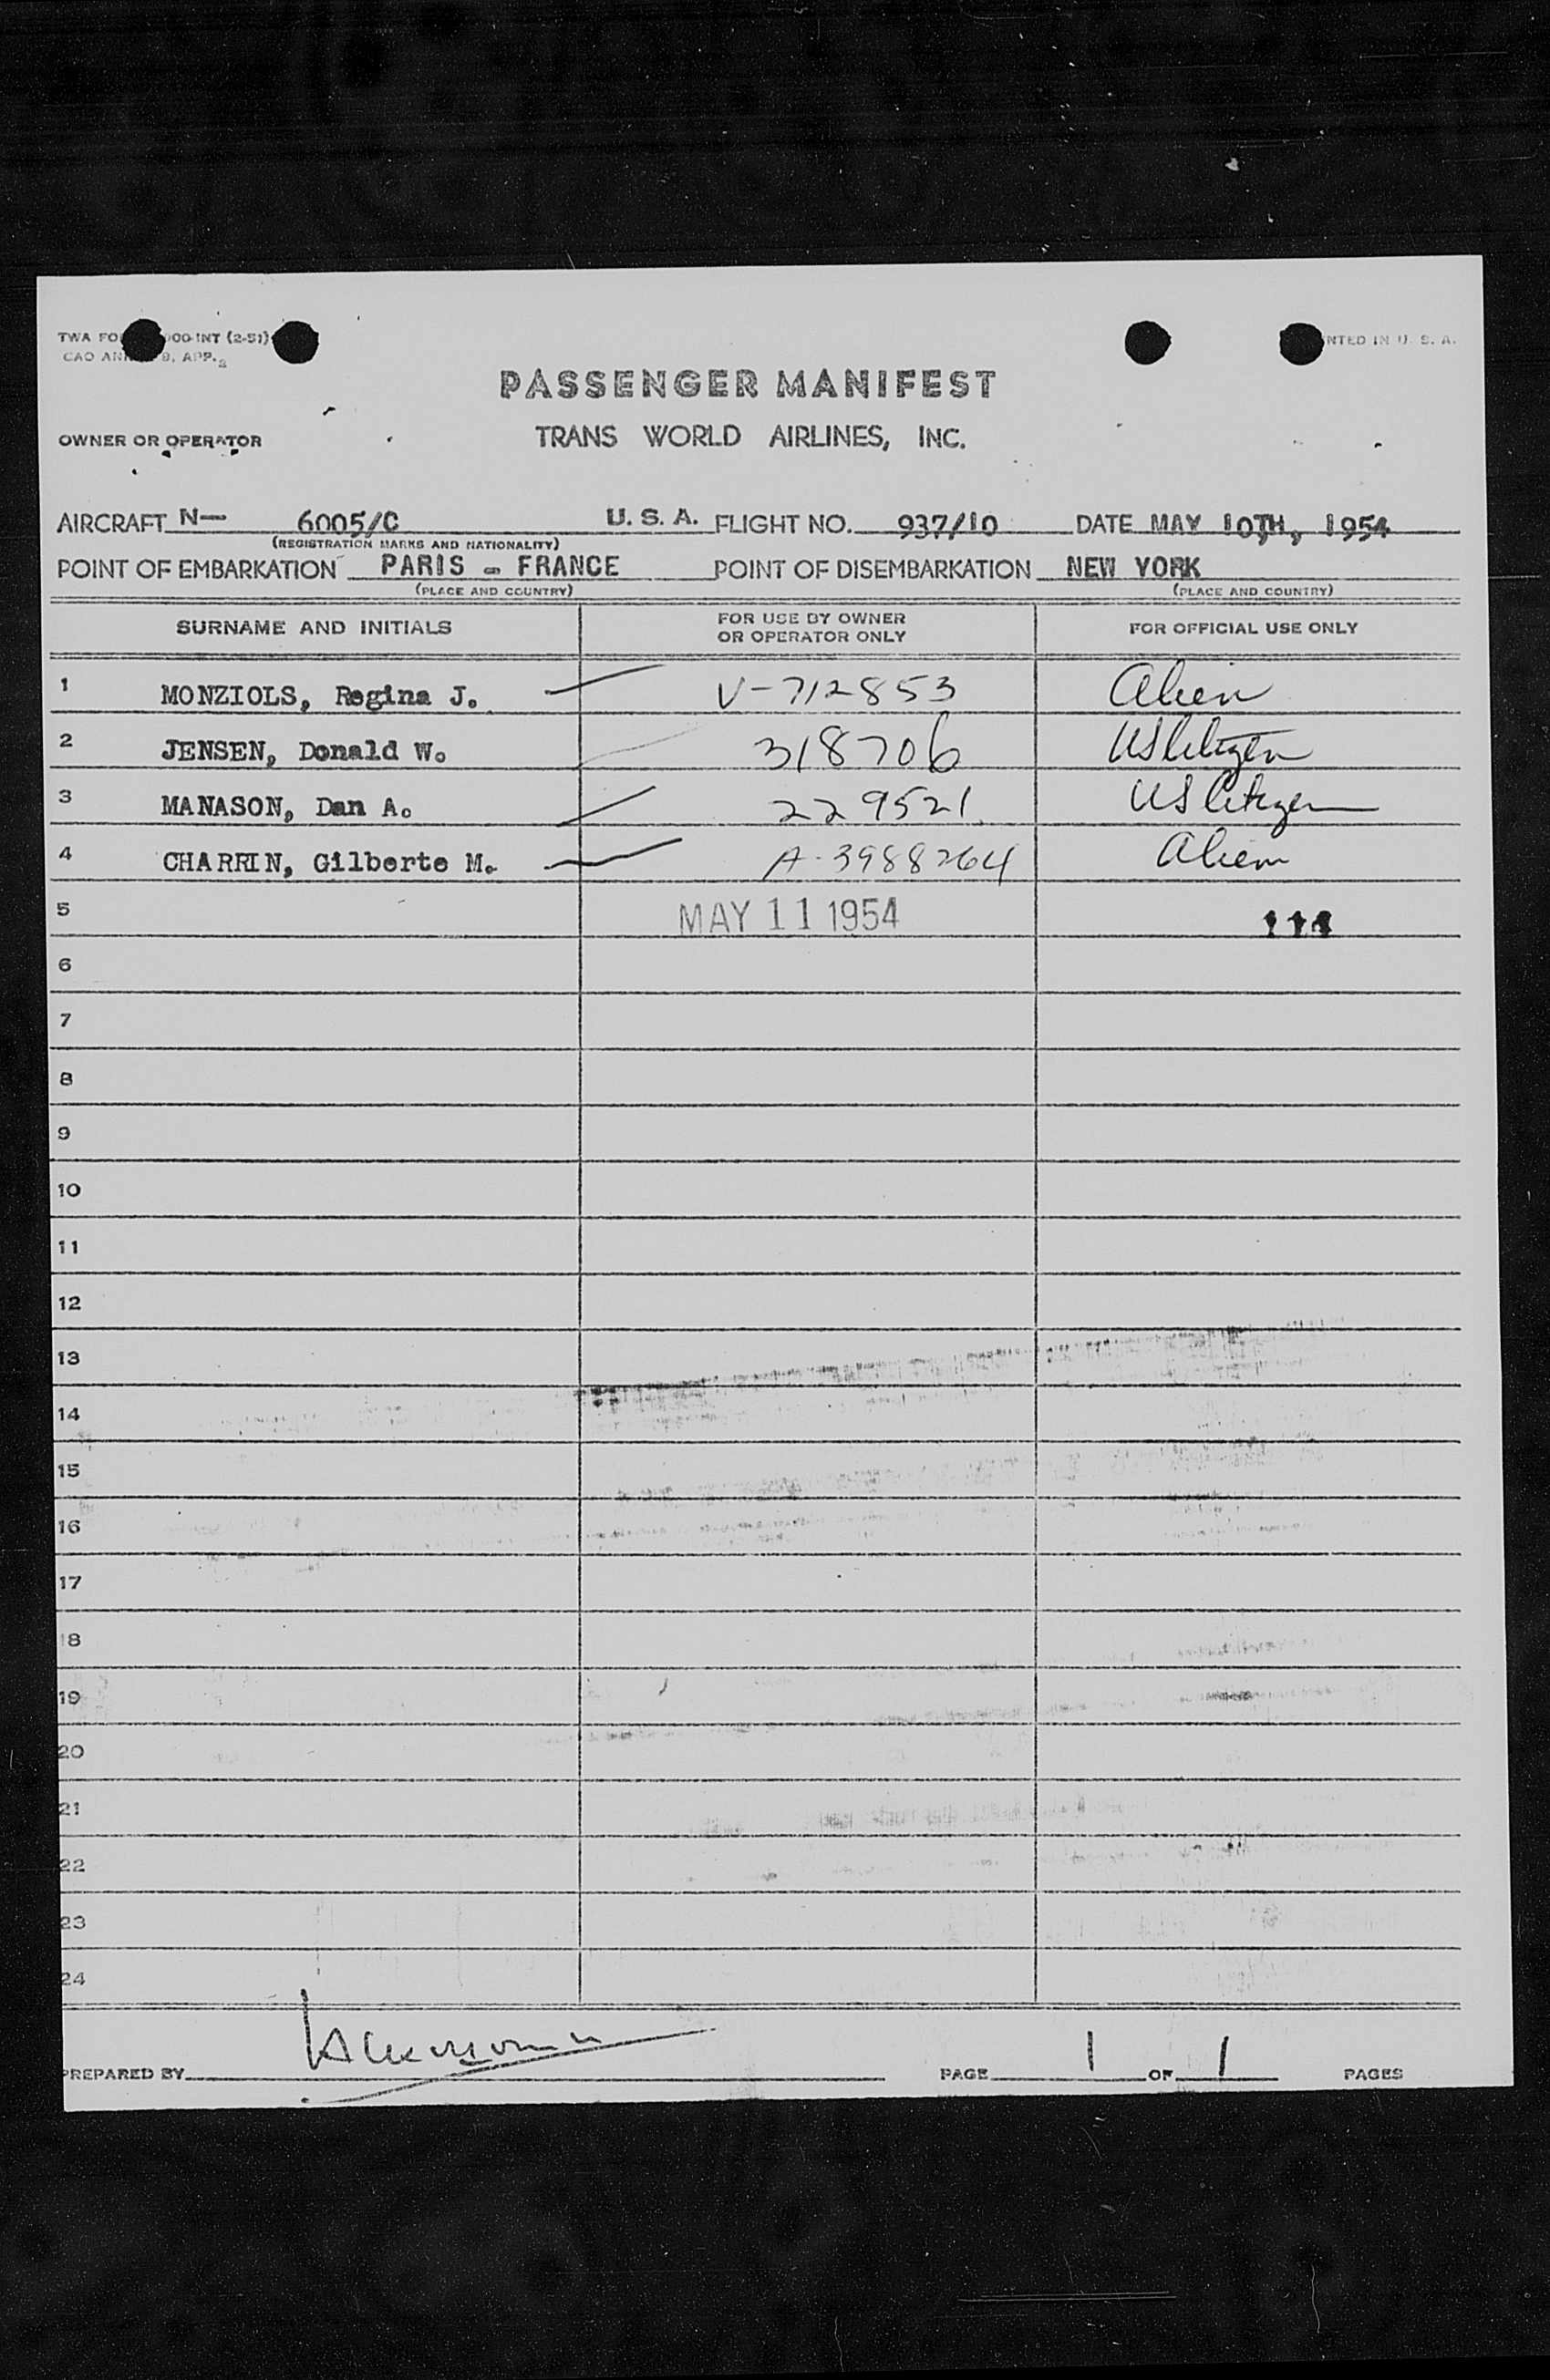 TWA FO 000-INT (2-51)
CAO AN 9, APP. 2
NTED IN U. S. A.
PASSENGER MANIFEST
OWNER OR OPERATOR TRANS WORLD AIRLINES, INC.
AIRCRAFT N— 6005/C U. S. A. FLIGHT NO. 937/10 DATE MAY 10TH, 1954
(REGISTRATION MARKS AND NATIONALITY)
POINT OF EMBARKATION PARIS - FRANCE POINT OF DISEMBARKATION NEW YORK
(PLACE AND COUNTRY) (PLACE AND COUNTRY)
SURNAME AND INITIALS FOR USE BY OWNER OR OPERATOR ONLY FOR OFFICIAL USE ONLY
1 MONZIOLS, Regina J. V-712853 Alien
2 JENSEN, Donald W. 318706 US Citizen
3 MANASON, Dan A. 229521 US Citizen
4 CHARRIN, Gilberte M. A-3988264 Alien
5 MAY 11 1954
6
7
8
9
10
11
12
13
14
15
16
17
18
19
20
21
22
23
24
PREPARED BY PAGE 1 OF 1 PAGES